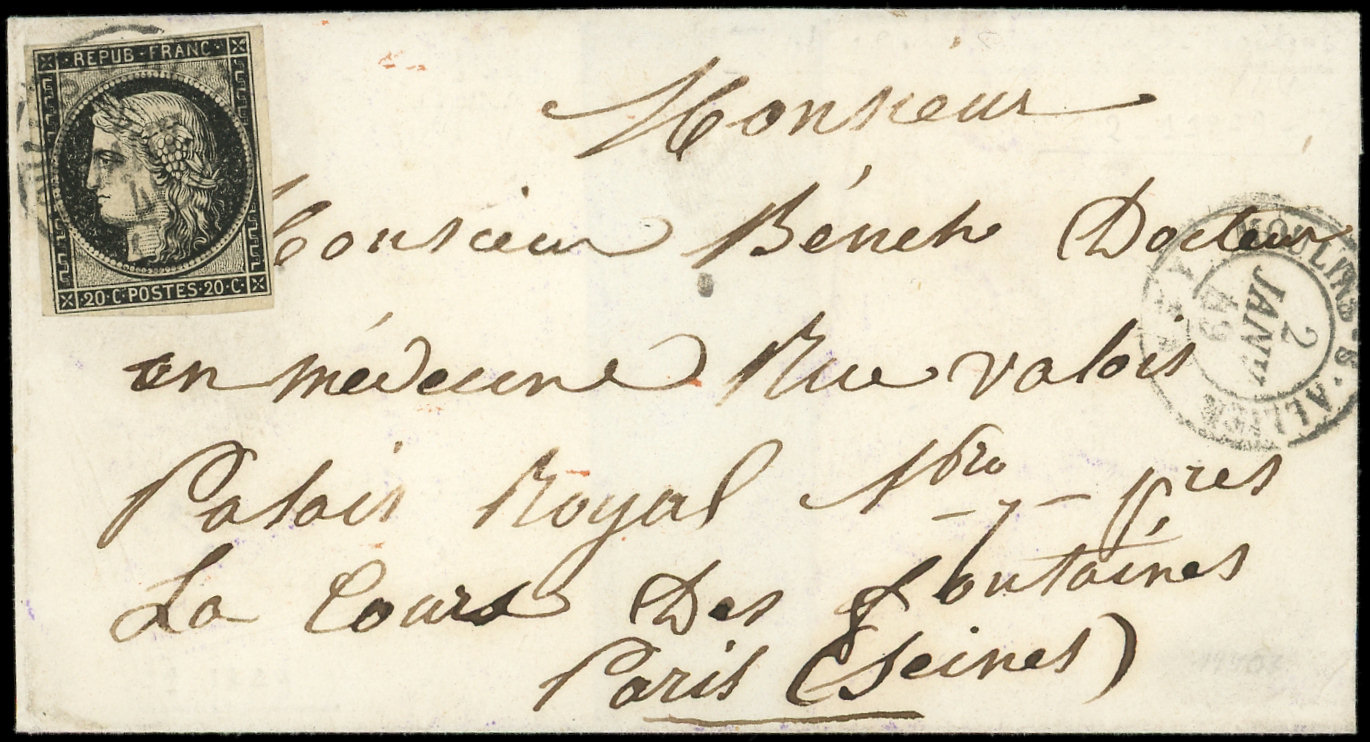 REPUB · FRANC ·
20 · C · POSTES · 20 · C
Monsieur
Monsieur Bénech Docteur
en médecine Rue valois
Palais Royal Nro 7 pres
La Cours Des fontaines
Paris (Seines)
MOULINS-S-ALLIER
2
JANV
49